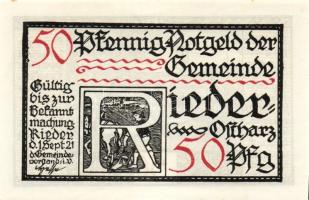 50 Pfennig-Notgeld der
Gemeinde
Rieder-
Ostharz
50 Pfg
Gültig
bis zur
Bekannt
machung
Rieder
d. 1 Sept 21
d Gemeinde-
vorstand: i.V.